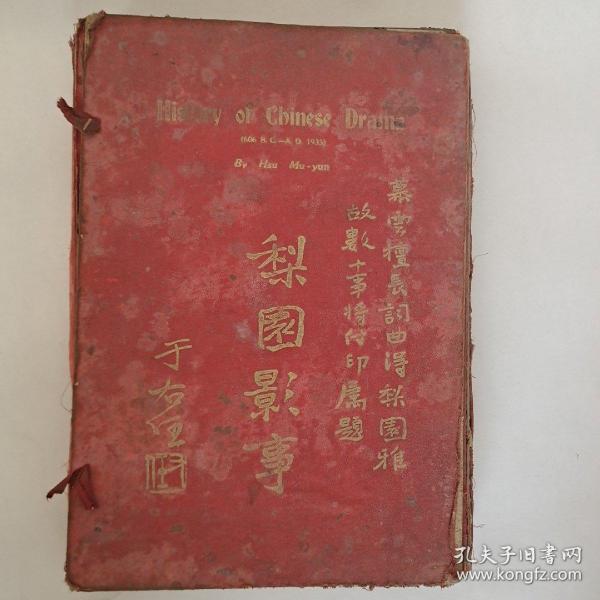 History of Chinese Drama
(606 B. C.—A. D. 1933)
By Hsu Mu-yun
慕雲擅長詞曲得梨園雅
故數十事將付印屬題
梨園影事
于右任
孔夫子旧书网
www.kongfz.com